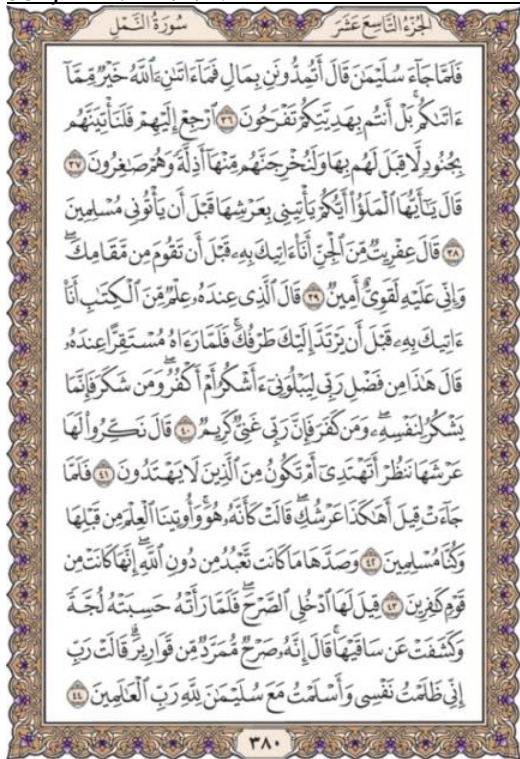 الجُزْءُ التَّاسِعَ عَشَرَ
سُورَةُ النَّمْلِ
فَلَمَّا جَآءَ سُلَيْمَٰنَ قَالَ أَتُمِدُّونَنِ بِمَالٍ فَمَآ ءَاتَىٰنِۦَ ٱللَّهُ خَيْرٌ مِّمَّآ
ءَاتَىٰكُم بَلْ أَنتُم بِهَدِيَّتِكُمْ تَفْرَحُونَ ٣٦ ٱرْجِعْ إِلَيْهِمْ فَلَنَأْتِيَنَّهُم
بِجُنُودٍ لَّا قِبَلَ لَهُم بِهَا وَلَنُخْرِجَنَّهُم مِّنْهَآ أَذِلَّةً وَهُمْ صَٰغِرُونَ ٣٧
قَالَ يَٰٓأَيُّهَا ٱلْمَلَؤُا۟ أَيُّكُمْ يَأْتِينِى بِعَرْشِهَا قَبْلَ أَن يَأْتُونِى مُسْلِمِينَ
٣٨ قَالَ عِفْرِيتٌ مِّنَ ٱلْجِنِّ أَنَا۠ ءَاتِيكَ بِهِۦ قَبْلَ أَن تَقُومَ مِن مَّقَامِكَ ۖ
وَإِنِّى عَلَيْهِ لَقَوِىٌّ أَمِينٌ ٣٩ قَالَ ٱلَّذِى عِندَهُۥ عِلْمٌ مِّنَ ٱلْكِتَٰبِ أَنَا۠
ءَاتِيكَ بِهِۦ قَبْلَ أَن يَرْتَدَّ إِلَيْكَ طَرْفُكَ ۚ فَلَمَّا رَءَاهُ مُسْتَقِرًّا عِندَهُۥ
قَالَ هَٰذَا مِن فَضْلِ رَبِّى لِيَبْلُوَنِىٓ ءَأَشْكُرُ أَمْ أَكْفُرُ ۖ وَمَن شَكَرَ فَإِنَّمَا
يَشْكُرُ لِنَفْسِهِۦ ۖ وَمَن كَفَرَ فَإِنَّ رَبِّى غَنِىٌّ كَرِيمٌ ٤٠ قَالَ نَكِّرُوا۟ لَهَا
عَرْشَهَا نَنظُرْ أَتَهْتَدِىٓ أَمْ تَكُونُ مِنَ ٱلَّذِينَ لَا يَهْتَدُونَ ٤١ فَلَمَّا
جَآءَتْ قِيلَ أَهَٰكَذَا عَرْشُكِ ۖ قَالَتْ كَأَنَّهُۥ هُوَ ۚ وَأُوتِينَا ٱلْعِلْمَ مِن قَبْلِهَا
وَكُنَّا مُسْلِمِينَ ٤٢ وَصَدَّهَا مَا كَانَت تَّعْبُدُ مِن دُونِ ٱللَّهِ ۖ إِنَّهَا كَانَتْ مِن
قَوْمٍ كَٰفِرِينَ ٤٣ قِيلَ لَهَا ٱدْخُلِى ٱلصَّرْحَ ۖ فَلَمَّا رَأَتْهُ حَسِبَتْهُ لُجَّةً
وَكَشَفَتْ عَن سَاقَيْهَا ۚ قَالَ إِنَّهُۥ صَرْحٌ مُّمَرَّدٌ مِّن قَوَارِيرَ ۗ قَالَتْ رَبِّ
إِنِّى ظَلَمْتُ نَفْسِى وَأَسْلَمْتُ مَعَ سُلَيْمَٰنَ لِلَّهِ رَبِّ ٱلْعَٰلَمِينَ ٤٤
٣٨٠